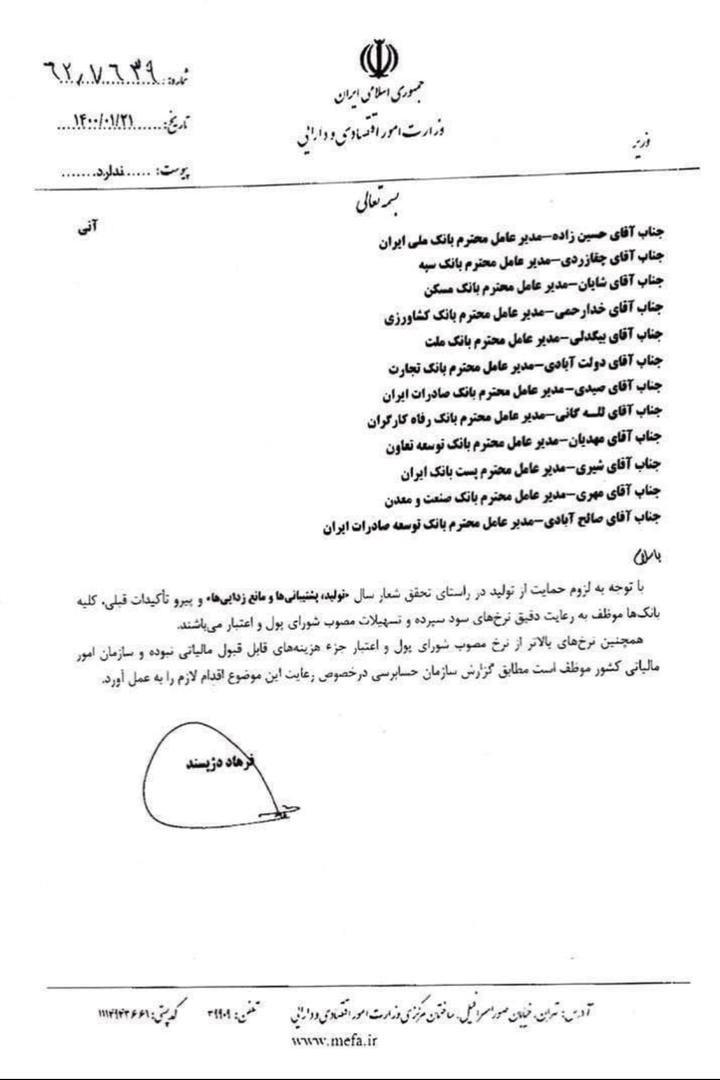 جمهوری اسلامی ایران
وزارت امور اقتصادی و دارایی
وزیر
شماره: ۶۲٫۷۶۳۹
تاریخ: ۱۴۰۰/۰۱/۲۱
پیوست: ندارد
بسمه تعالی
آنی
جناب آقای حسین زاده–مدیر عامل محترم بانک ملی ایران
جناب آقای چقازردی–مدیر عامل محترم بانک سپه
جناب آقای شایان–مدیر عامل محترم بانک مسکن
جناب آقای خدارحمی–مدیر عامل محترم بانک کشاورزی
جناب آقای بیگدلی–مدیر عامل محترم بانک ملت
جناب آقای دولت آبادی–مدیر عامل محترم بانک تجارت
جناب آقای صیدی–مدیر عامل محترم بانک صادرات ایران
جناب آقای لله گانی–مدیر عامل محترم بانک رفاه کارگران
جناب آقای مهدیان–مدیر عامل محترم بانک توسعه تعاون
جناب آقای شیری–مدیر عامل محترم پست بانک ایران
جناب آقای مهری–مدیر عامل محترم بانک صنعت و معدن
جناب آقای صالح آبادی–مدیر عامل محترم بانک توسعه صادرات ایران
باسلام
با توجه به لزوم حمایت از تولید در راستای تحقق شعار سال «تولید، پشتیبانی‌ها و مانع زدایی‌ها» و پیرو تأکیدات قبلی، کلیه
بانک‌ها موظف به رعایت دقیق نرخ‌های سود سپرده و تسهیلات مصوب شورای پول و اعتبار می‌باشند.
همچنین نرخ‌های بالاتر از نرخ مصوب شورای پول و اعتبار جزء هزینه‌های قابل قبول مالیاتی نبوده و سازمان امور
مالیاتی کشور موظف است مطابق گزارش سازمان حسابرسی درخصوص رعایت این موضوع اقدام لازم را به عمل آورد.
فرهاد دژپسند
آدرس: تهران، خیابان صوراسرافیل، ساختمان مرکزی وزارت امور اقتصادی و دارایی تلفن: ۳۹۹۰۹ کدپستی: ۱۱۱۴۹۴۳۶۶۱
www.mefa.ir